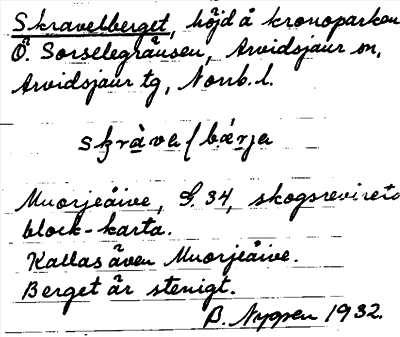 Skravelberget, höjd å kronoparken
Ö. Sorselegränsen, Arvidsjaur sn,
Arvidsjaur tg, Norrb. l.
skràvaƪbárja
Muorjeåive, G. 34, skogsrevirets
block-karta.
Kallas även Muorjeåive.
Berget är stenigt.
B. Nygren 1932.